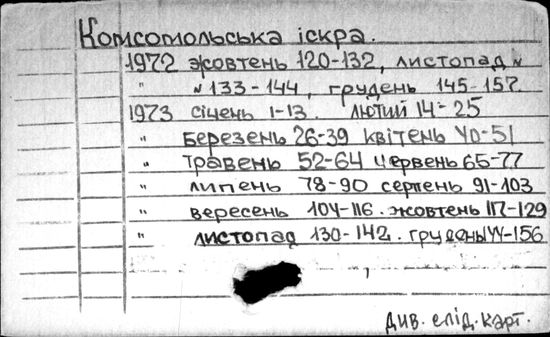 Комсомольська іскра.
1972 жовтень 120-132, листопад №
" № 133-144, грудень 145-157.
1973 січень 1-13. лютий 14-25
" березень 26-39 квітень 40-51
" травень 52-64 червень 65-77
" липень 78-90 серпень 91-103
" вересень 104-116. жовтень 117-129
" листопад 130-142. грудень 144-156
див. слід. карт.